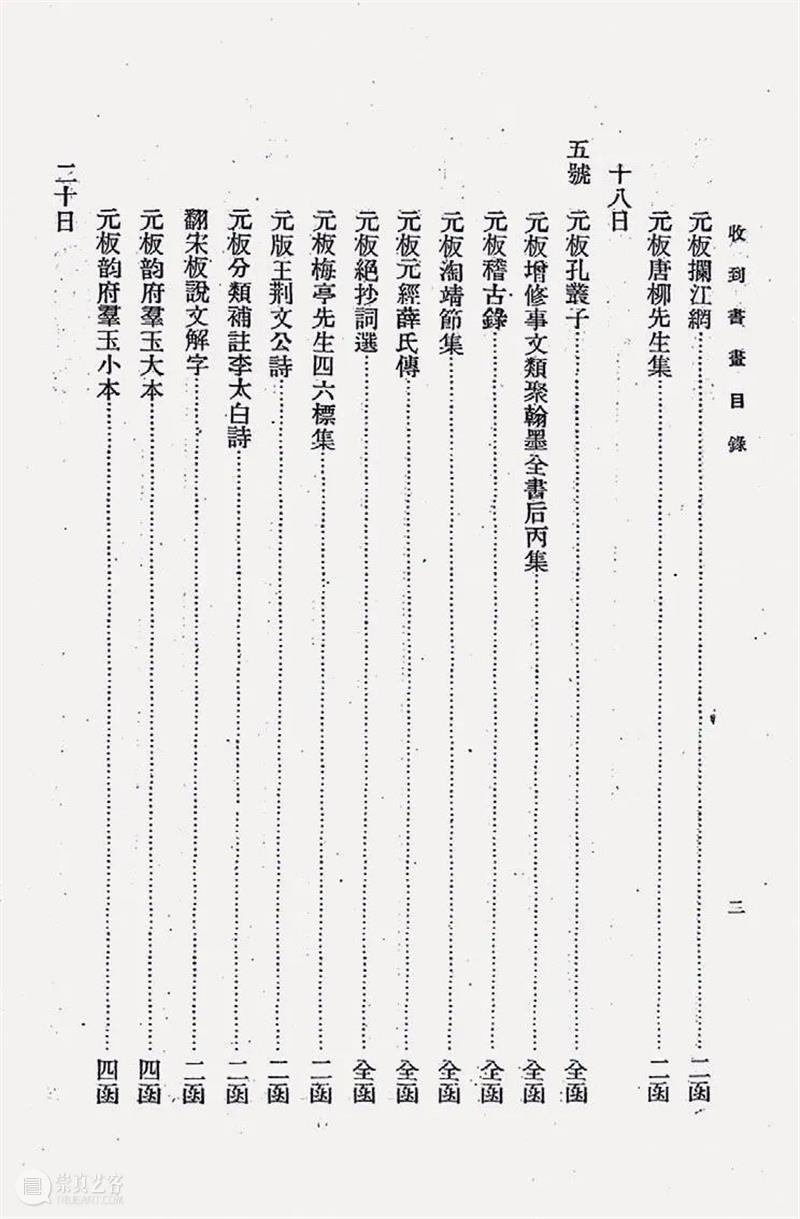 收到書畫目錄
三
元板攔江網……二函
元板唐柳先生集……二函
十八日
五號 元板孔叢子……全函
元板增修事文類聚翰墨全書后丙集……全函
元板稽古錄……全函
元板淘靖節集……全函
元板元經薛氏傳……全函
元板絕抄詞選……全函
元板梅亭先生四六標集……二函
元版王荆文公詩……二函
元板分類補註李太白詩……二函
翻宋板說文解字……二函
元板韵府羣玉大本……四函
元板韵府羣玉小本……四函
二十日
崇真艺客
TRUEART.COM